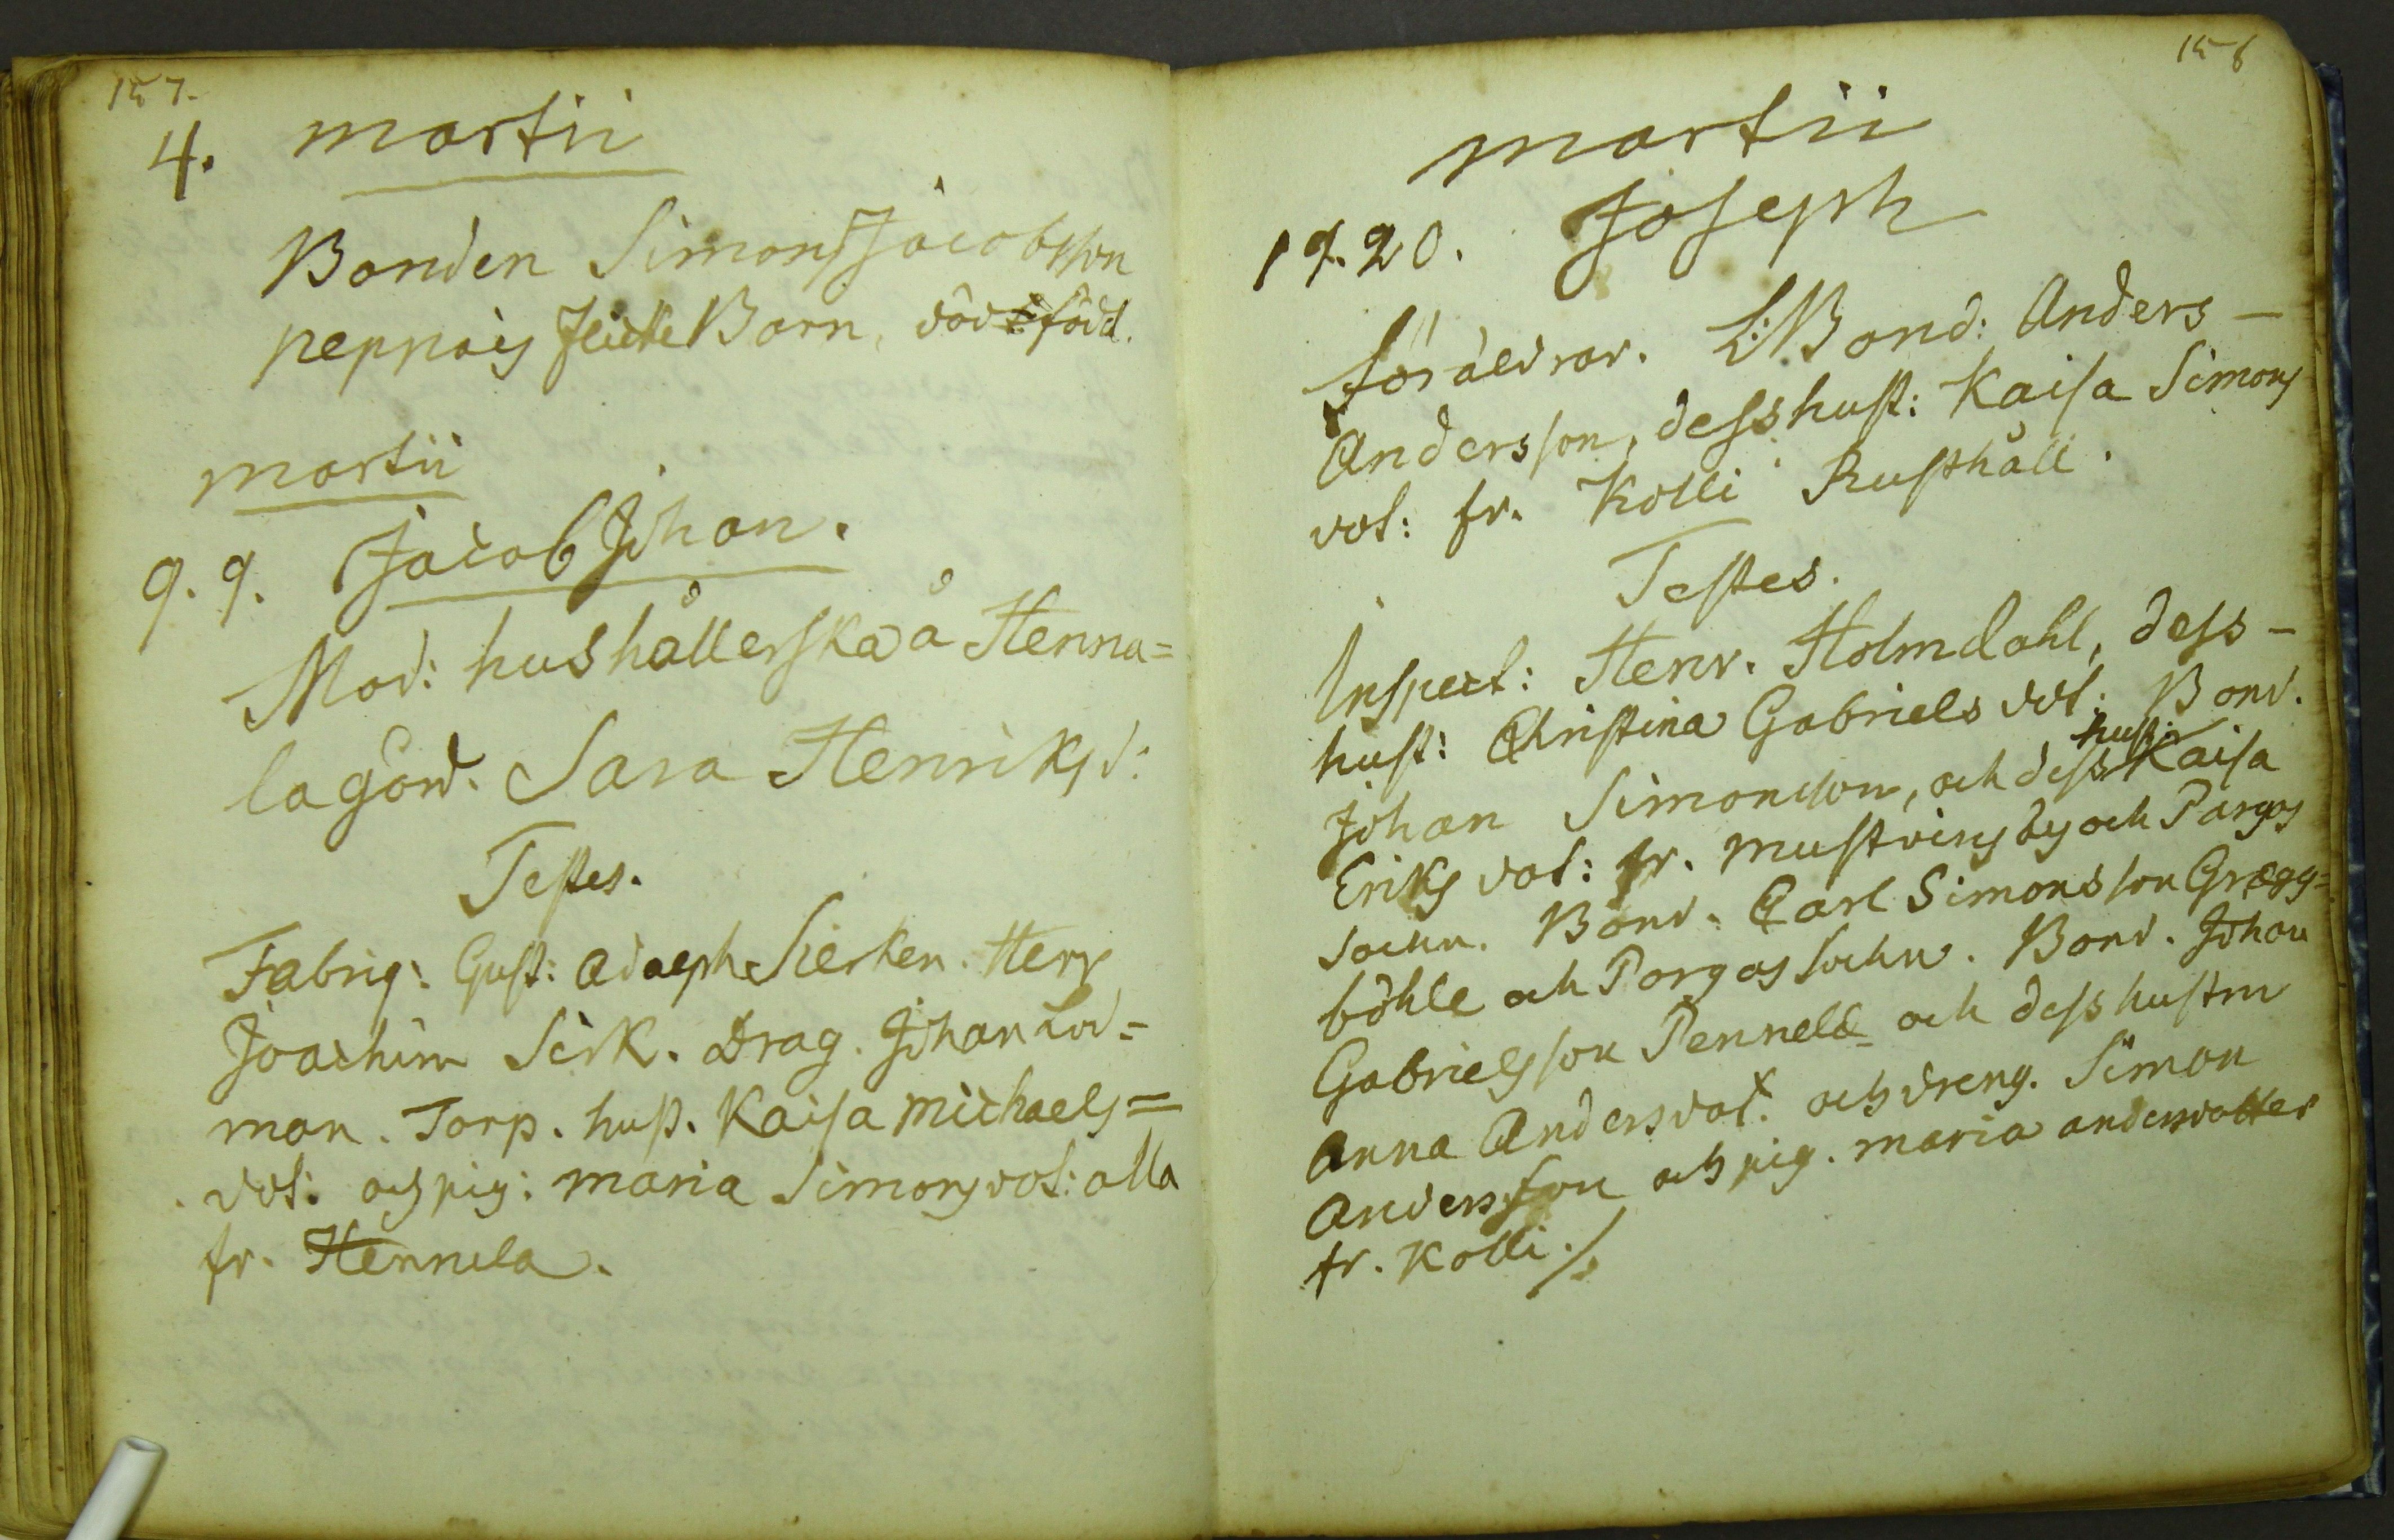 157.
4. martii
Bonden Simons Jacobsson
peppois flicke Barn, död född.
martii
9. 9. Jacob Johan.
Mod: hushållerska å Henna=
la gård. Sara Henriksd:
Testes.
Fabriq: Gust: Adolph Sierken. Herr
Joachim Sirk. Drag. Johan Lod=
man. Torp. hust. Kaisa Michaels=
dot: och pig: Maria Simonsdot: alla
fr. Hennala.
158
martii
19. 20. Joseph
föräldrar. L: Bond: Anders-
Andersson, dess hust: Kaisa Simons
dot: fr. Kolli Rusthåll.
Testes.
Inspect: Henr. Holmdahl, dess-
hust: Christina Gabriels dot: Bond.
Johan Simonsson, och dess hust: Kaisa
Eriks dot: fr. Mustvins by och Pargas
sochn. Bond. Carl Simonsson Grægg=
böhle och Pargas sochn. Bond. Johan
Gabrielsson Pennela och dess hustru
Anna Andersdot: och dreng. Simon
Andersson och pig. Maria andersdotter
fr. Kolli./.